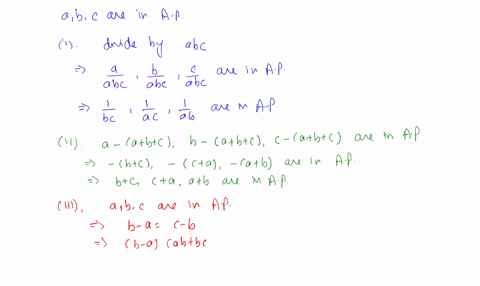 a, b, c are in A.P.
(i). divide by abc
⇒ a/abc, b/abc, c/abc are in A.P.
⇒ 1/bc, 1/ac, 1/ab are in A.P.
(ii). a-(a+b+c), b-(a+b+c), c-(a+b+c) are in AP
⇒ -(b+c), -(c+a), -(a+b) are in A.P.
⇒ b+c, c+a, a+b are in A.P.
(iii), a, b, c are in A.P.
⇒ b-a = c-b
⇒ (b-a) (ab+bc